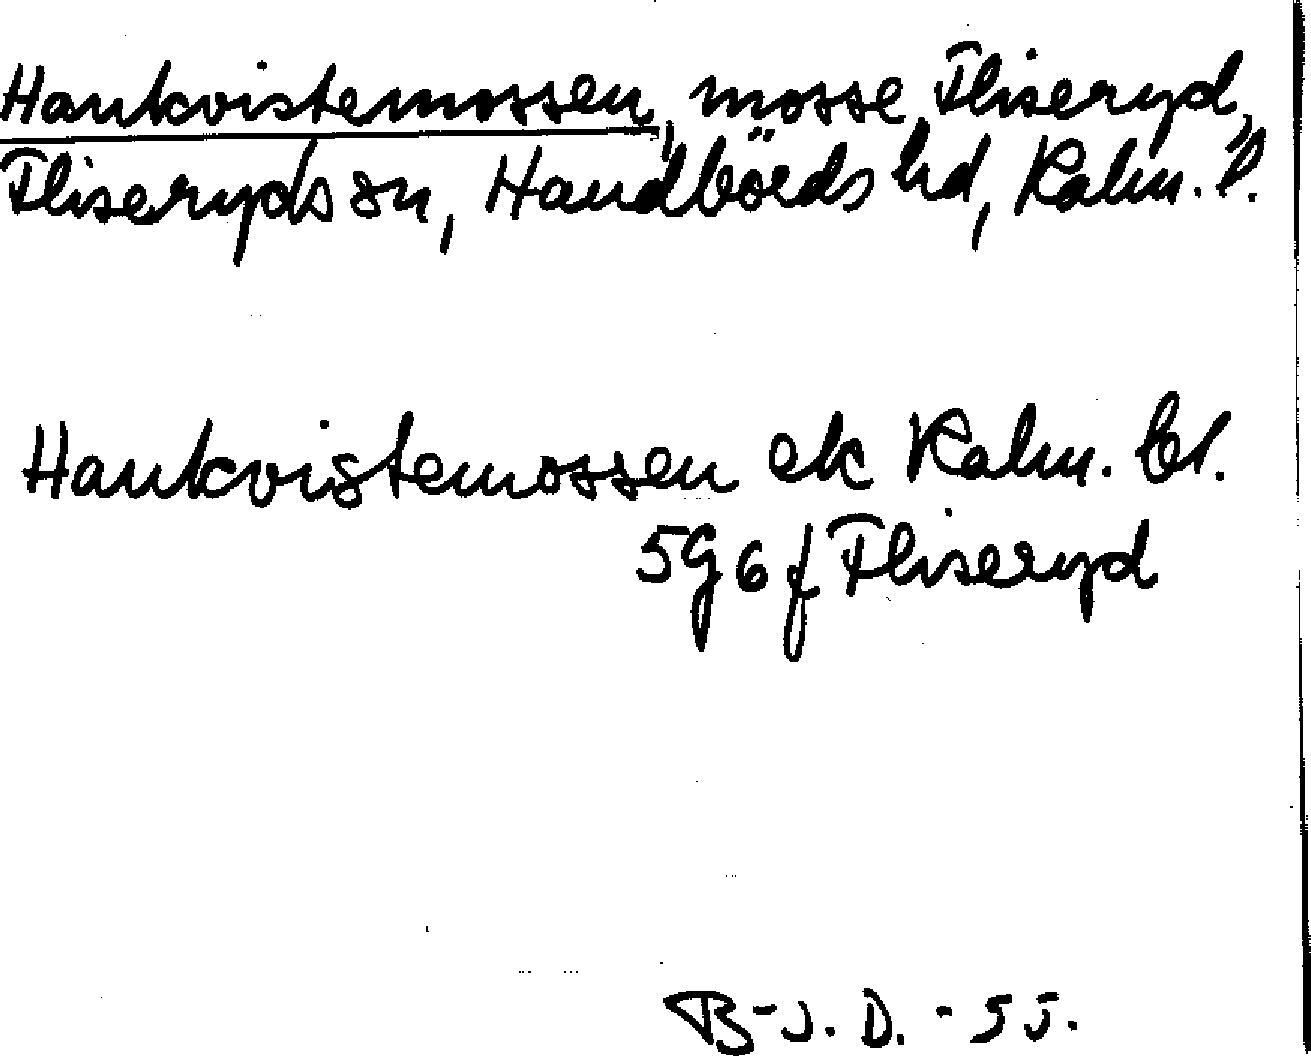 Hankvistemossen, mosse, Fliseryd,
Fliseryds sn, Handbörds hd, Kalm. l.
Hankvistemossen ek Kalm. bl.
5G6f Fliseryd
B-J. D. - 55.